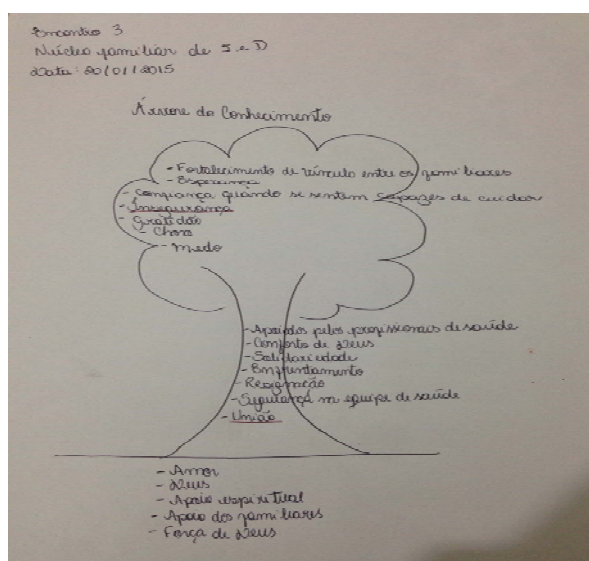 Encontro 3
Núcleo familiar de S. e D
Data: 20/01/2015
Árvore do Conhecimento
- Fortalecimento de vínculo entre os familiares
- Esperança
- Confiança quando se sentem capazes de cuidar
- Insegurança
- Gratidão
- Choro
- Medo
- Apoiados pelos profissionais de saúde
- Conforto de Deus
- Solidariedade
- Enfrentamento
- Resignação
- Segurança na equipe de saúde
- União
- Amor
- Deus
- Apoio espiritual
- Apoio dos familiares
- Força de Deus